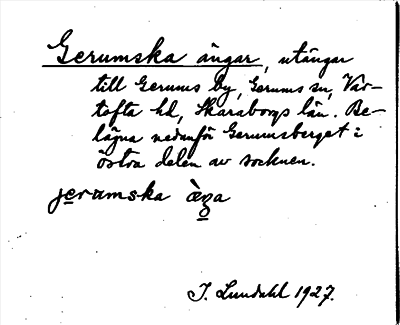 Gerumska ängar, utängar
till Gerums by, Gerums sn, Var-
tofta hd, Skaraborgs län. Be-
lägna nedanför Gerumsberget i
östra delen av socknen.
jerumska
J. Lundahl 1927.